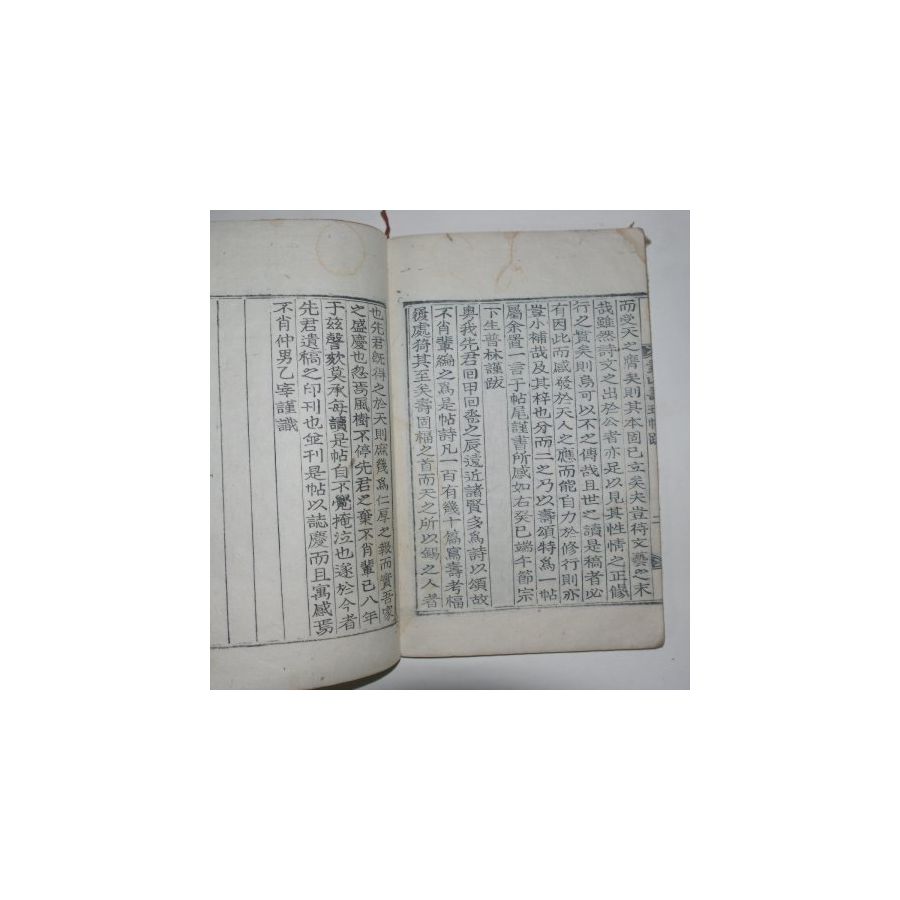 而受天之齊矣則其本固已立矣夫豈待文藝之末
哉雖然詩文之出於公者亦足以見其性情之正修
行之實矣則烏可以不之傳哉且世之讀是稿者必
有因此而感發於天人之應而能自力於修行則亦
豈小補哉及其梓也分而二之乃以壽頌特為一帖
屬余置一言于帖尾謹書所感如右癸巳端午節宗
下生普林謹跋
奧我先君回甲回巹之辰遠近諸賢多為詩以頌故
不肖輩編之為是帖詩凡一百有幾十篇寫壽考福
後處猗其至矣壽固福之首而天之所以錫之人者
也先君旣得之於天則庶幾為仁厚之報而實吾家
之盛慶也忽焉風樹不停先君之棄不肖輩已八年
于玆謦欬莫承每讀是帖自不覺掩泣也遂於今者
先君遺稿之印刊也並刊是帖以誌慶而且寓感焉
不肖仲男乙宰謹識